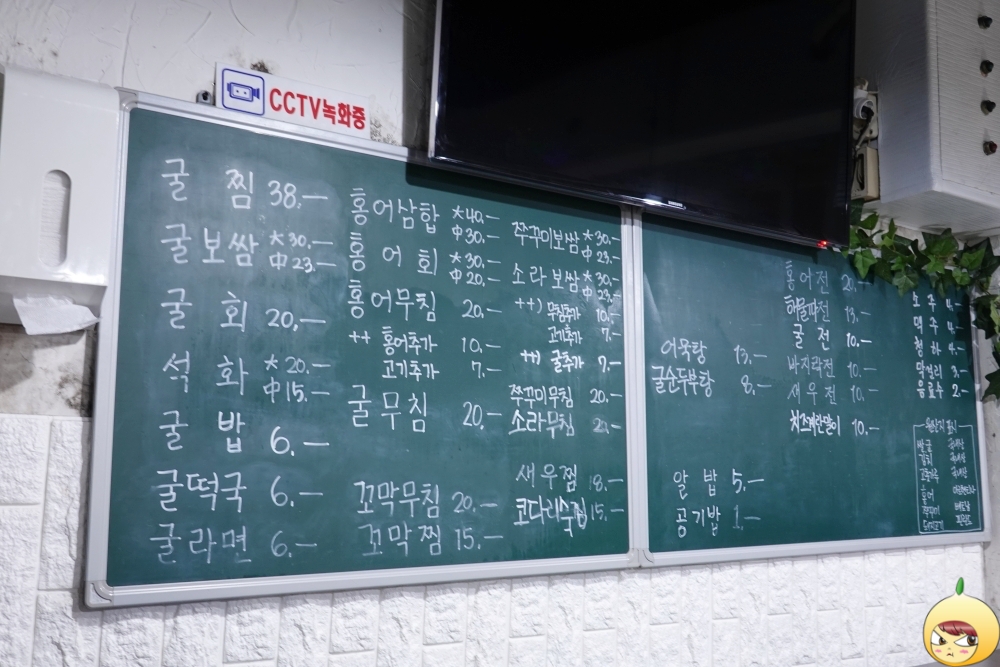 CCTV녹화중
SAMSUNG
굴 찜 38.—
굴보쌈 大30.—
中23.—
굴 회 20.—
석 화 大20.—
中15.—
굴 밥 6.—
굴떡국 6.—
굴라면 6.—
홍어삼합 大40.—
中30.—
홍 어 회 大30.—
中20.—
홍어무침 20.—
++ 홍어추가 10.—
고기추가 7.—
굴무침 20.—
꼬막무침 20.—
꼬막찜 15.—
쭈꾸미보쌈 大30.—
中23.—
소라보쌈 大30.—
中23.—
++) 무침추가 10.—
고기추가 7.—
++) 굴추가 7.—
쭈꾸미무침 20.—
소라무침 20.—
새우찜 18.—
코다리찜 15.—
어묵탕 13.—
굴순두부탕 8.—
알 밥 5.—
공기밥 1.—
홍어전 20.—
해물파전 13.—
굴 전 10.—
바지락전 10.—
새우전 10.—
치즈계란말이 10.—
소 주 4.—
맥 주 4.—
청 하 4.—
막걸리 3.—
음료수 2.—
원산지 표시